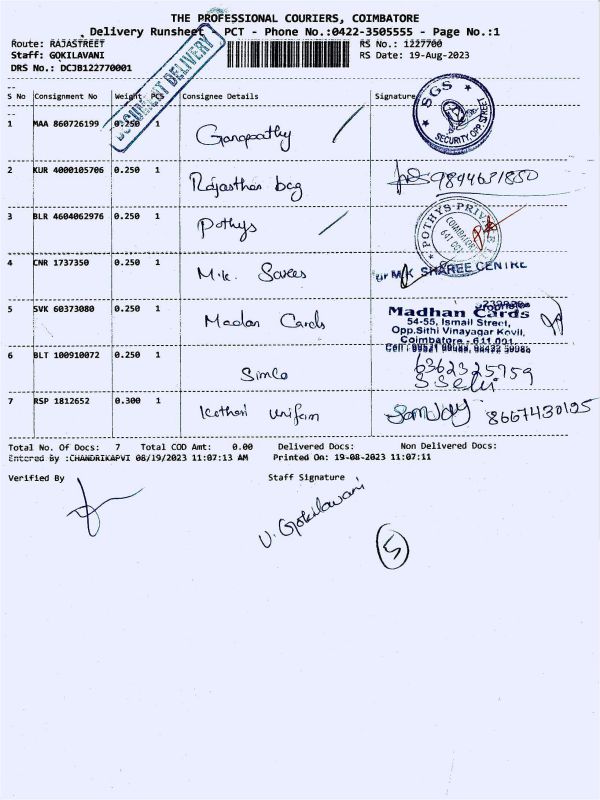 THE PROFESSIONAL COURIERS, COIMBATORE
Delivery Runsheet PCT - Phone No.:0422-3505555 - Page No.:1
Route: RAJASTREET RS No.: 1227700
Staff: GOKILAVANI RS Date: 19-Aug-2023
DRS No.: DCJB122770001
DOCUMENT DELIVERY
S No Consignment No Weight PCS Consignee Details Signature
SGS
SECURITY, OPP. STREET
1 MAA 860726199 0.250 1 Ganapathy
2 KUR 4000105706 0.250 1 Rajasthan bag 9894631850
3 BLR 4604062976 0.250 1 Pothys
POTHYS PRIVATE
COIMBATORE
641 001
4 CNR 1737350 0.250 1 M.K. Sarees
For M.K SHAREE CENTRE
5 SVK 60373080 0.250 1 Madan Cards
Madhan Cards
54-55, Ismail Street,
Opp.Sithi Vinayagar Kovil,
Coimbatore - 641 001
6 BLT 100910072 0.250 1 Simco 6362325759
Selvi
7 RSP 1812652 0.300 1 Kothari Uniform Sanjay 8667430195
Total No. Of Docs: 7 Total COD Amt: 0.00 Delivered Docs: Non Delivered Docs:
Entered By :CHANDRIKAPVI 08/19/2023 11:07:13 AM Printed On: 19-08-2023 11:07:11
Verified By Staff Signature
V. Gokilavani
5